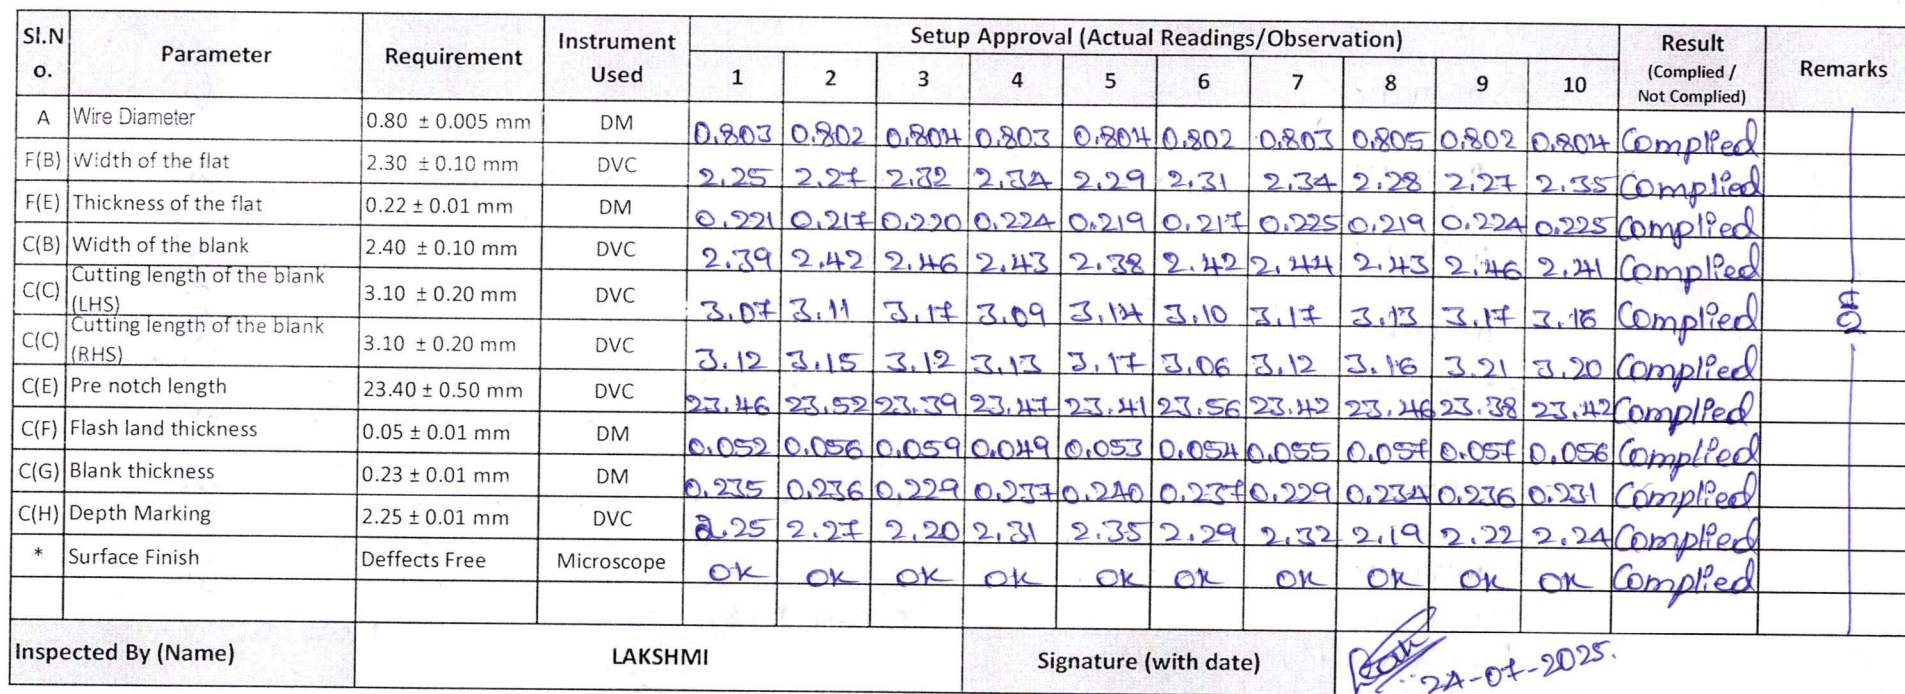 Sl.No. Parameter Requirement Instrument Used Setup Approval (Actual Readings/Observation) Result (Complied / Not Complied) Remarks
1 2 3 4 5 6 7 8 9 10
A Wire Diameter 0.80 ± 0.005 mm DM 0.803 0.802 0.804 0.803 0.804 0.802 0.803 0.805 0.802 0.804 Complied
F(B) Width of the flat 2.30 ± 0.10 mm DVC 2.25 2.27 2.32 2.34 2.29 2.31 2.34 2.28 2.27 2.35 Complied
F(E) Thickness of the flat 0.22 ± 0.01 mm DM 0.221 0.217 0.220 0.224 0.219 0.217 0.225 0.219 0.224 0.225 Complied
C(B) Width of the blank 2.40 ± 0.10 mm DVC 2.39 2.42 2.46 2.43 2.38 2.42 2.44 2.43 2.46 2.41 Complied
C(C) Cutting length of the blank (LHS) 3.10 ± 0.20 mm DVC 3.07 3.11 3.17 3.09 3.14 3.10 3.17 3.13 3.17 3.16 Complied
C(C) Cutting length of the blank (RHS) 3.10 ± 0.20 mm DVC 3.12 3.15 3.12 3.13 3.17 3.06 3.12 3.16 3.21 3.20 Complied
C(E) Pre notch length 23.40 ± 0.50 mm DVC 23.46 23.52 23.39 23.47 23.41 23.56 23.42 23.46 23.38 23.42 Complied
C(F) Flash land thickness 0.05 ± 0.01 mm DM 0.052 0.056 0.059 0.049 0.053 0.054 0.055 0.057 0.057 0.056 Complied
C(G) Blank thickness 0.23 ± 0.01 mm DM 0.235 0.236 0.229 0.237 0.240 0.237 0.229 0.234 0.236 0.231 Complied
C(H) Depth Marking 2.25 ± 0.01 mm DVC 2.25 2.27 2.20 2.31 2.35 2.29 2.32 2.19 2.22 2.24 Complied
* Surface Finish Deffects Free Microscope OK OK OK OK OK OK OK OK OK OK Complied
Inspected By (Name) LAKSHMI Signature (with date) 24-07-2025.